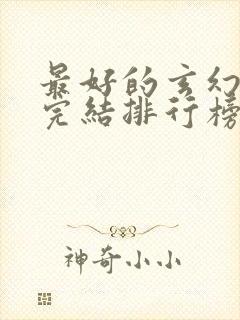 最好的玄幻
完結排行榜
神奇小小